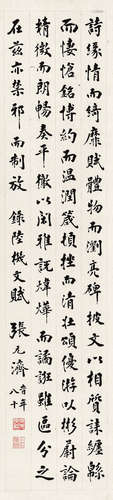 詩緣情而綺靡賦體物而瀏亮碑披文以相質誄纏緜
而悽愴銘博約而溫潤箴頓挫而清壯頌優游以彬蔚論
精微而朗暢奏平徹以閑雅說煒曄而譎誑雖區分之
在茲亦禁邪而制放 錄陸機文賦 張元濟
旹年
八十